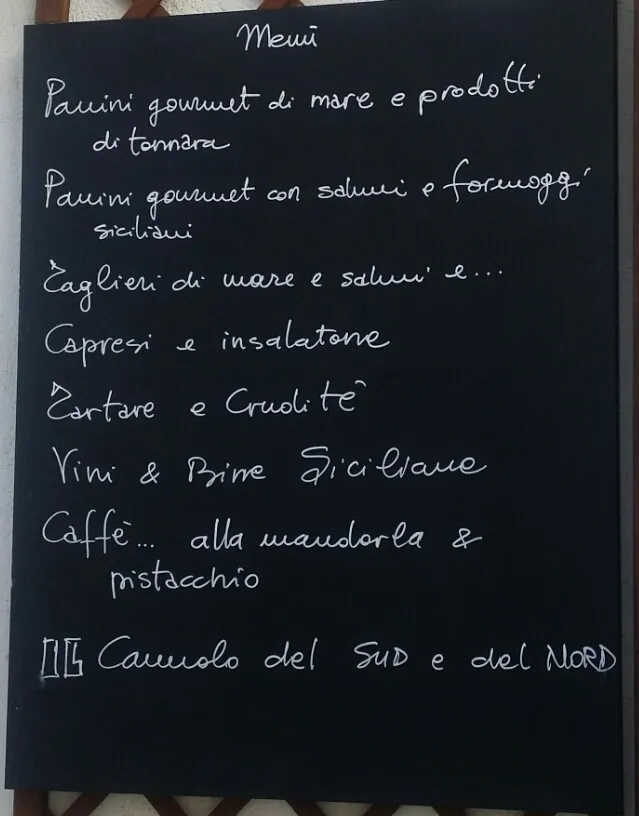 Menù
Panini gourmet di mare e prodotti
di tonnara
Panini gourmet con salumi e formaggi
siciliani
Taglieri di mare e salumi e...
Capresi e insalatone
Tartare e Crudité
Vini & Birre Siciliane
Caffè... alla mandorla &
pistacchio
IL Cannolo del SUD e del NORD